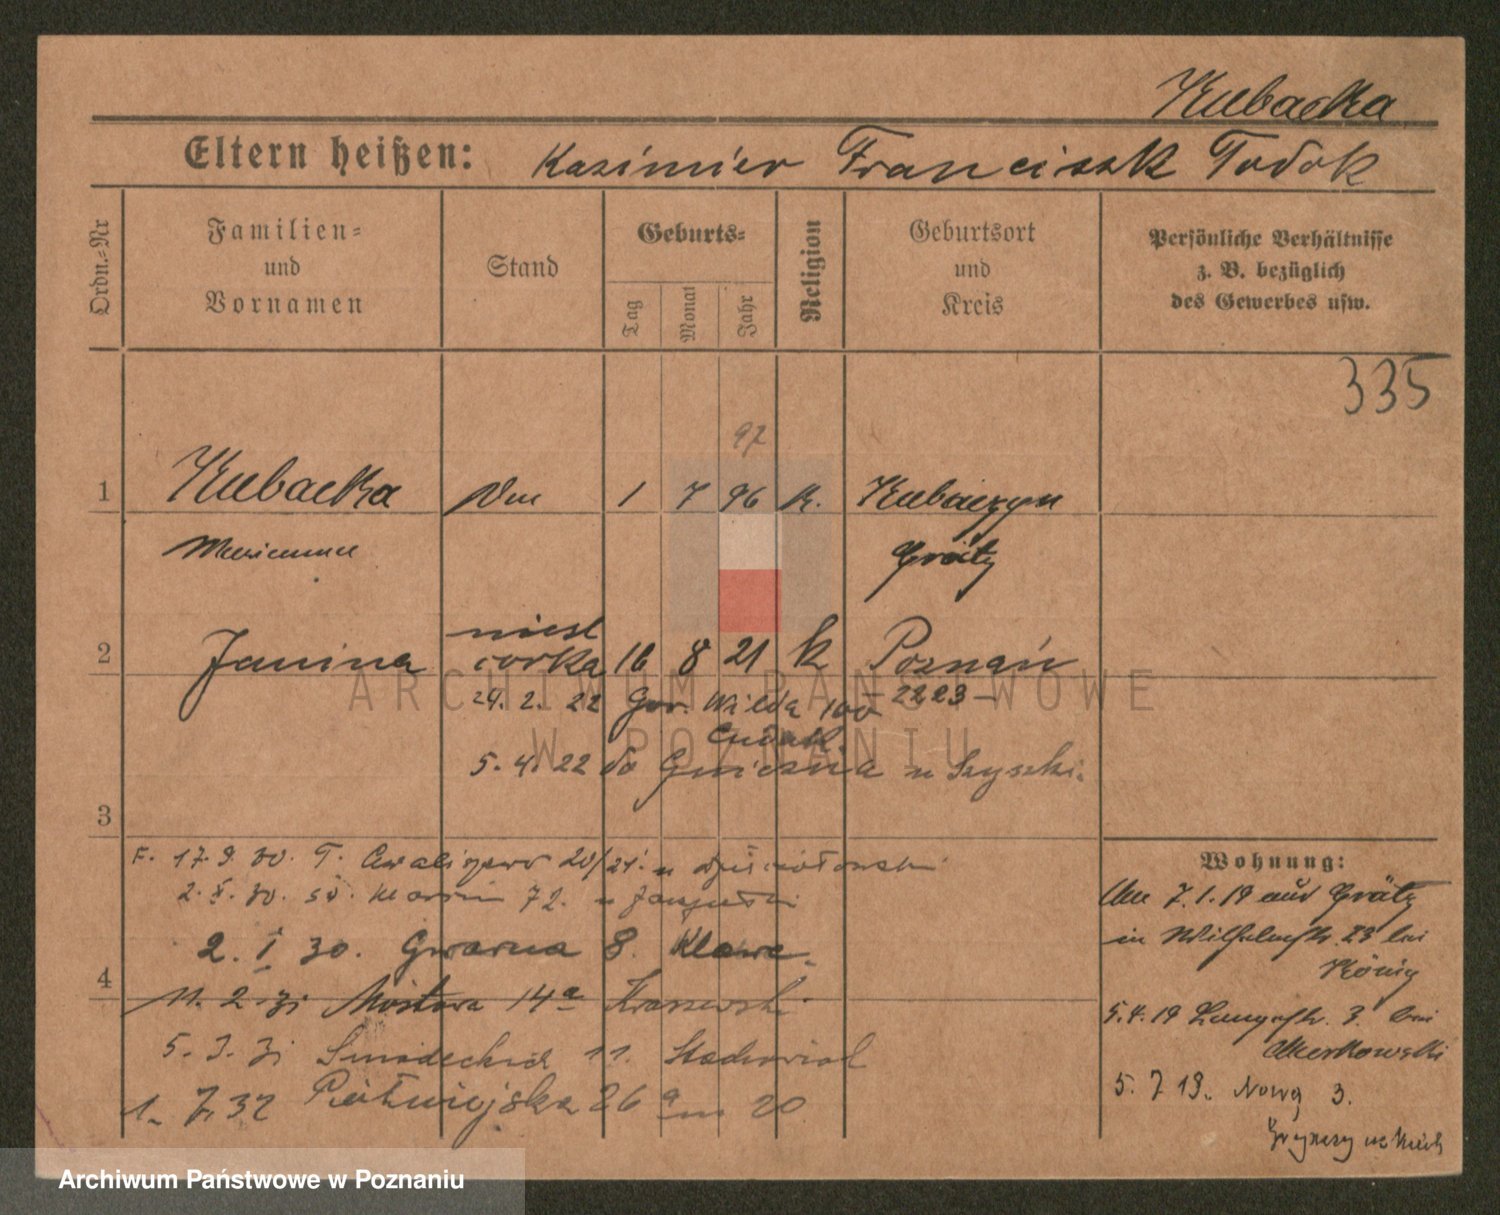 Kubacka
Eltern heißen: Kazimier Franciszk Todok
Ordn.=Nr
Familien=
und
Vornamen
Stand
Geburts=
Tag
Monat
Jahr
Religion
Geburtsort
und
Kreis
Persönliche Verhältnisse
z. B. bezüglich
des Gewerbes usw.
335
97
1 Kubacka 1 7 96 k. Kubaczyn
Marianna Grätz
niesl
2 Janina corka 16 8 21 k Poznań
29. 2. 22 Gor. Wilda 100 - 2223 -
5. 4. 22 do Gniezna u Szyszki.
3
F. 17. 9. 30. T. 20/21. u
2. X. 30. św. Marcin 72. u
2. I 30. Gwarna 8.
4
11. 2. 31 Mostowa 14a Kraszewski
5. 3. 31 11.
1. 7. 32 26a m 20
Wohnung:
7. 1. 19 aus Grätz
in Wilhelmstr. 23 bei
König
5. 4. 19 Langestr. 3. bei
Merkowski
5. 7 19. Nowa 3.
ARCHIWUM PAŃSTWOWE
W POZNANIU
Archiwum Państwowe w Poznaniu